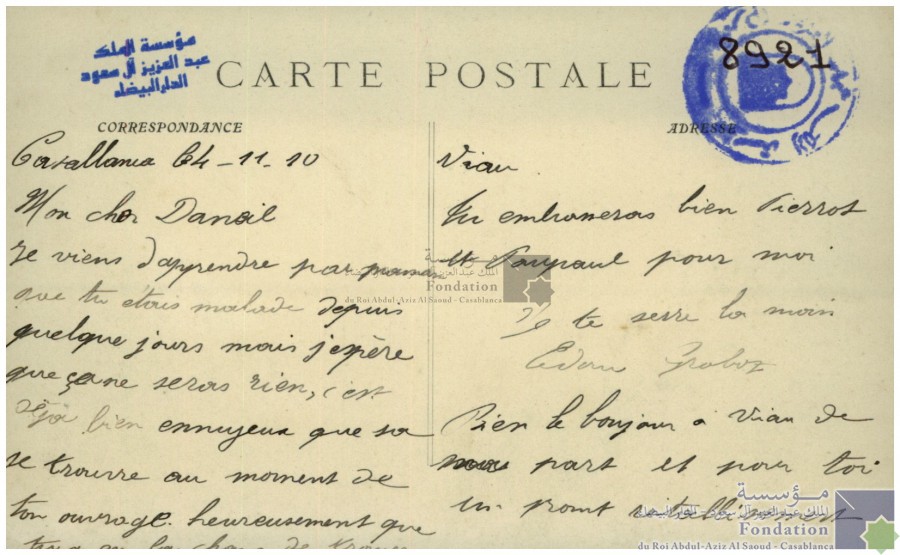 مؤسسة الملك
عبد العزيز آل سعود
الدار البيضاء
CARTE POSTALE
8921
CORRESPONDANCE
ADRESSE
Casablanca 4-11-10
Mon cher
Je viens d'apprendre par maman
que tu étais malade depuis
quelque jours mais j'espère
que ça ne seras rien, c'est
déjà bien ennuyeux que sa
se trouve au moment de
ton ouvrage. heureusement que
Viau
Tu embrasseras bien Pierrot
et pour moi
Je te serre la main
Bien le bonjour a Viau de
part et pour toi
un prompt
مؤسسة
الملك عبد العزيز آل سعود
Fondation
du Roi Abdul-Aziz Al Saoud - Casablanca
مؤسسة
الملك عبد العزيز آل سعود - الدار البيضاء
Fondation
du Roi Abdul-Aziz Al Saoud - Casablanca